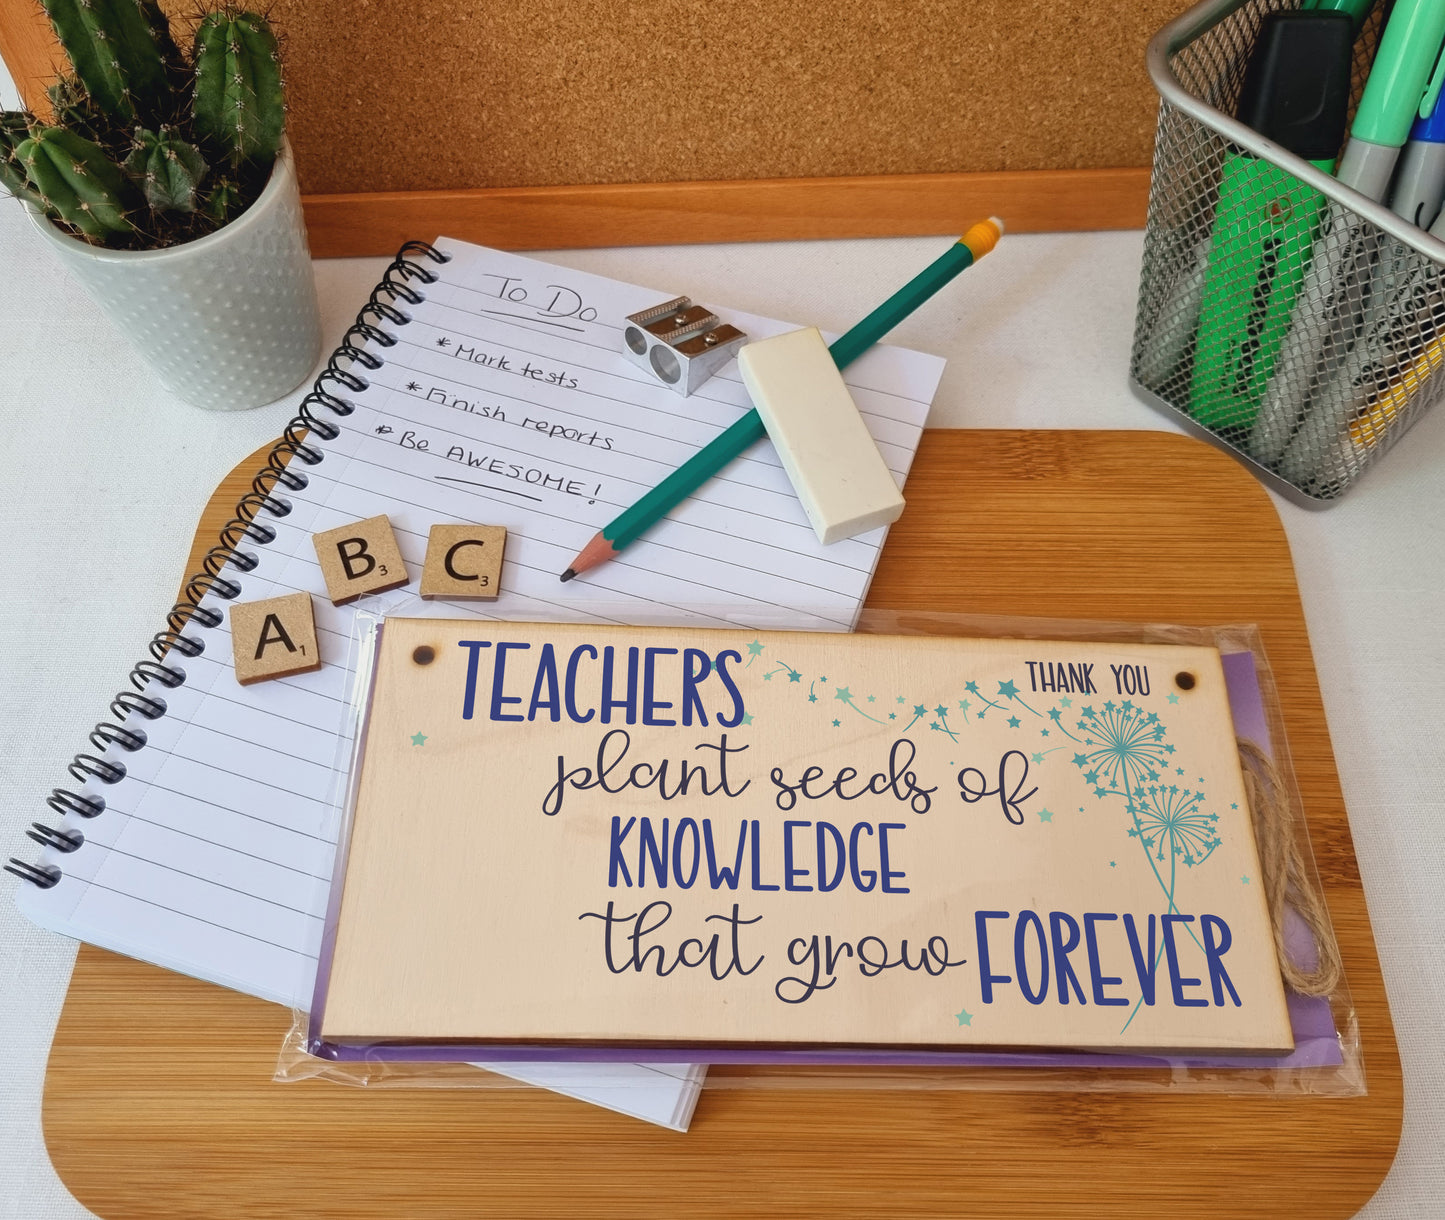 To Do
* Mark tests
* Finish reports
* Be AWESOME!
B3
C3
A1
THANK YOU
TEACHERS
plant seeds of
KNOWLEDGE
that grow FOREVER